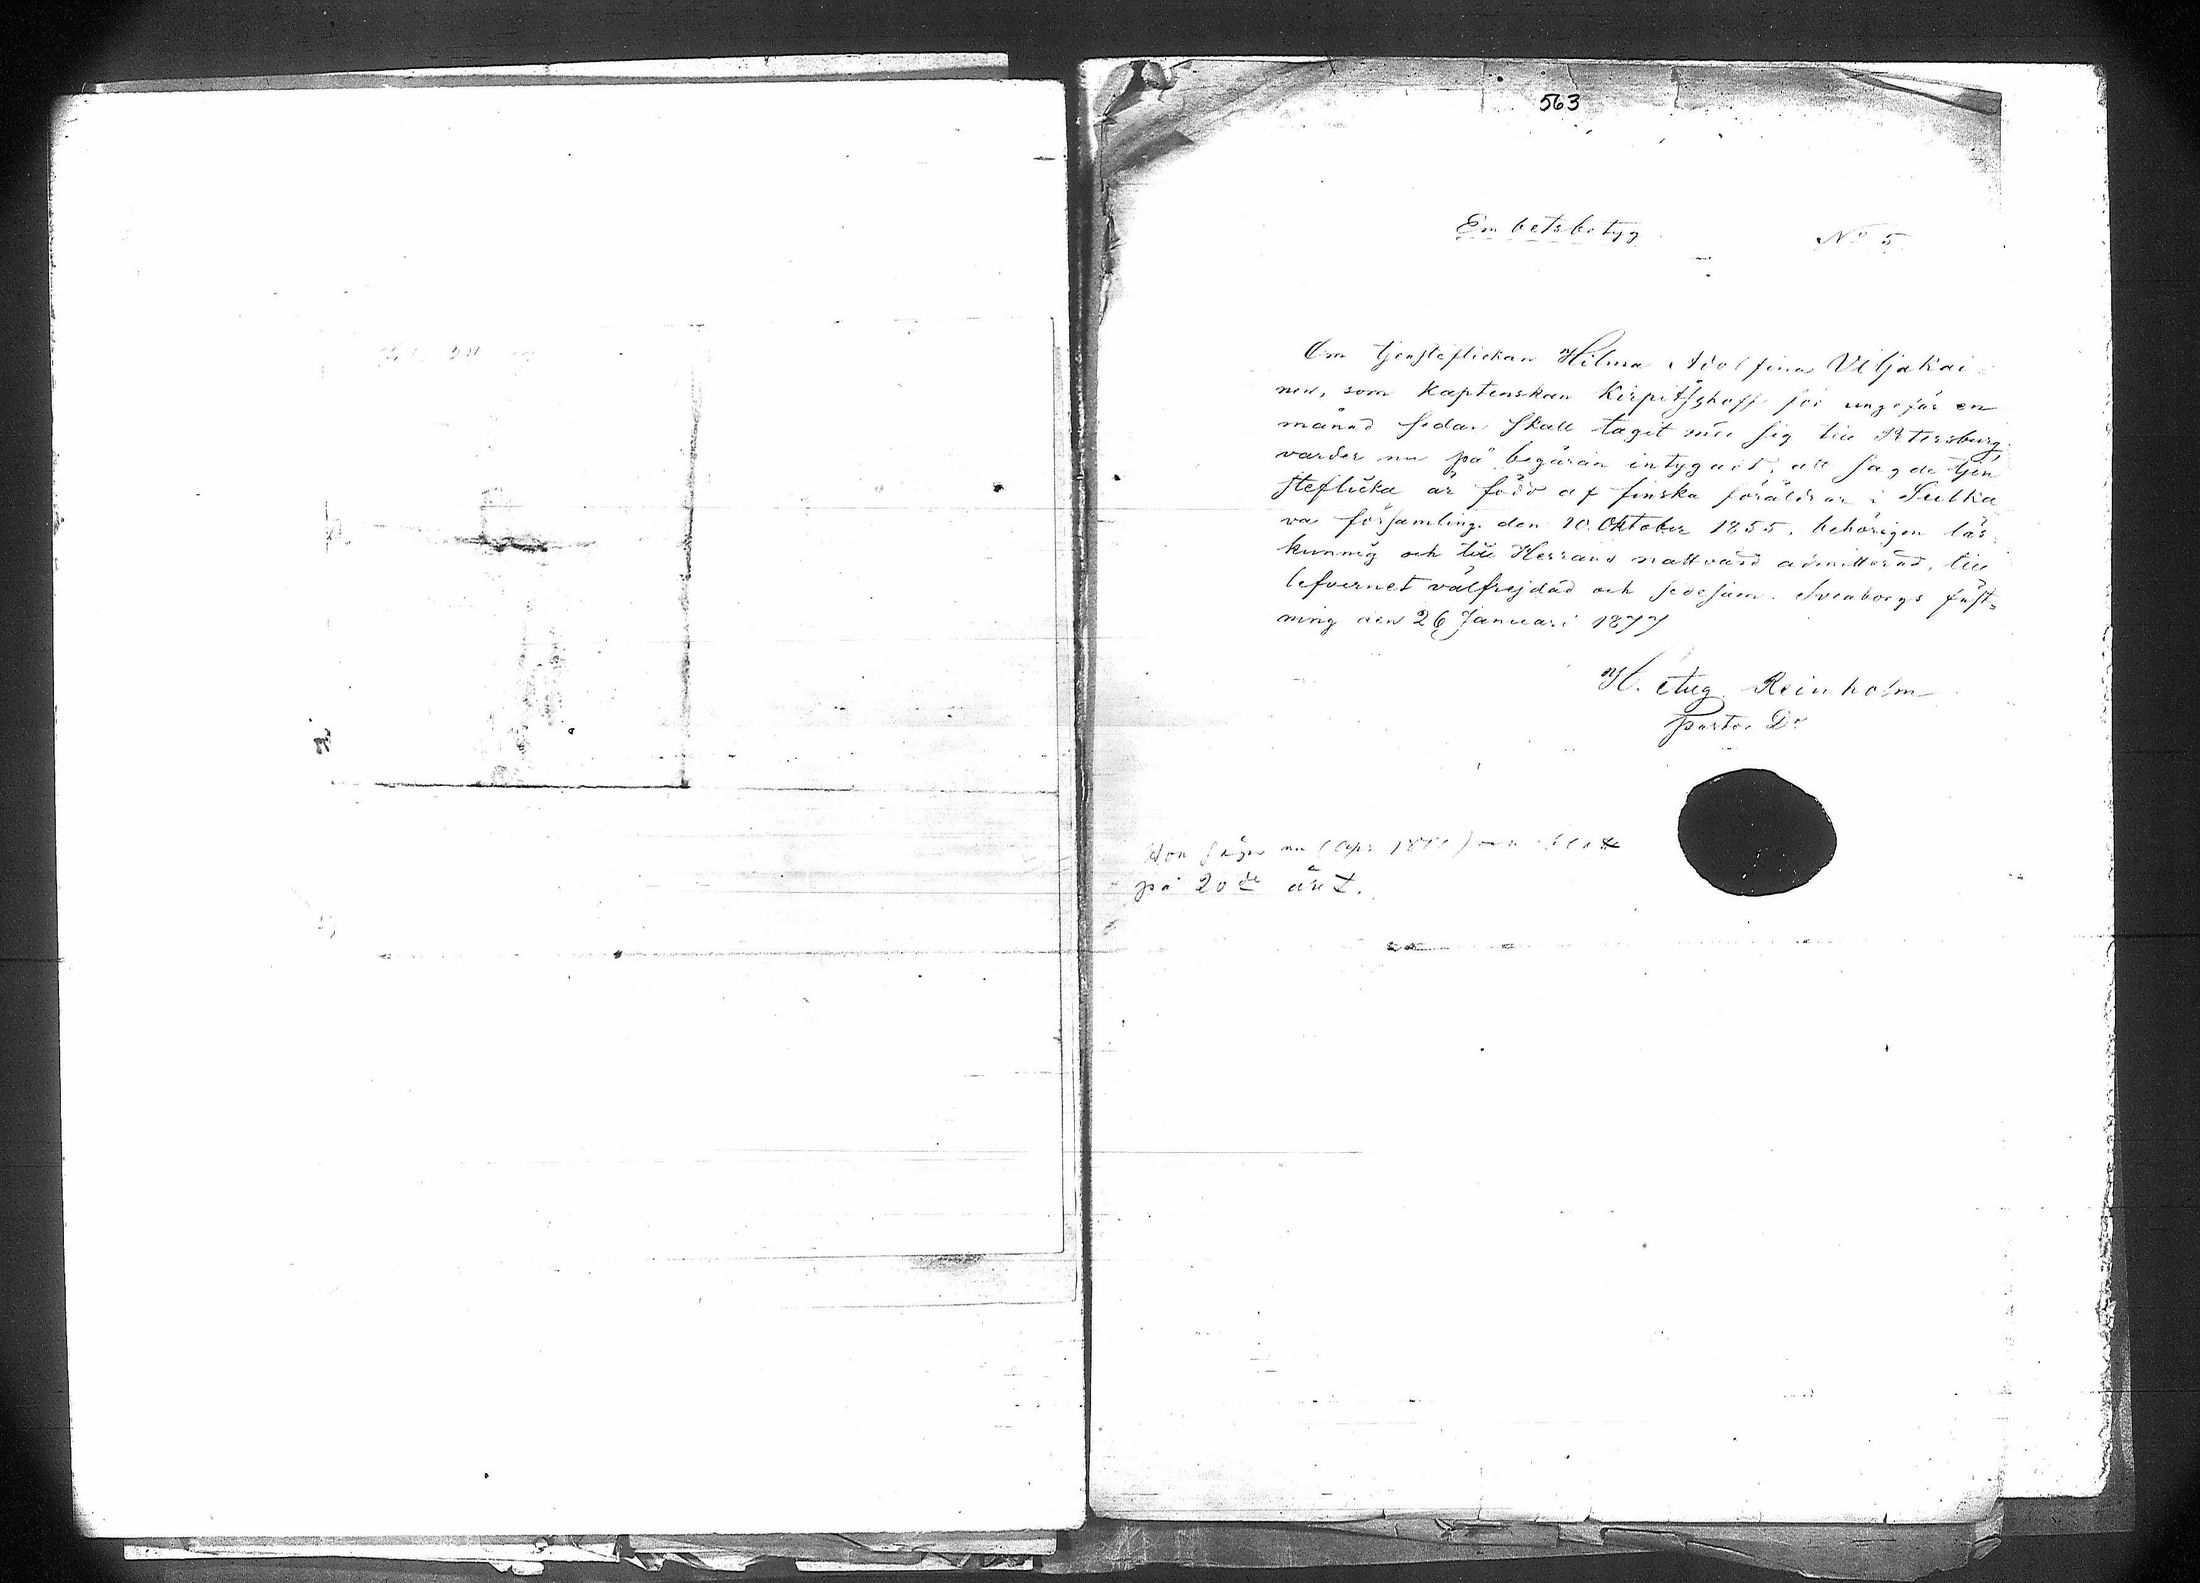 563
Embetsbetyg
No 5
Om tjensteflickan Hilma Adolfina Viljakai
nen, som kaptenskan Kirpitschoff för ungefär en
månad sedan skall tagit med sig till Petersburg,
varder nu på begäran intygadt, att sagde tjen
steflicka är född af finska föräldrar i Sulka
va församling den 10 Oktober 1855, behörigen läs
kunnig och till Herrans nattvard admitterad, till
lefvernet välfrejdad och sedesam. Sveaborgs fäst=
ning den 26 Januari 1877
H. Aug. Reinholm
pastor Dr
Hon säger nu
på 20de året.